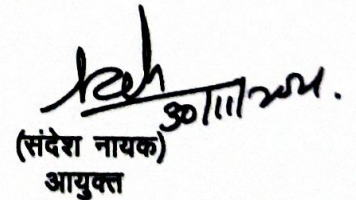 30/11/2021.
(संदेश नायक)
आयुक्त